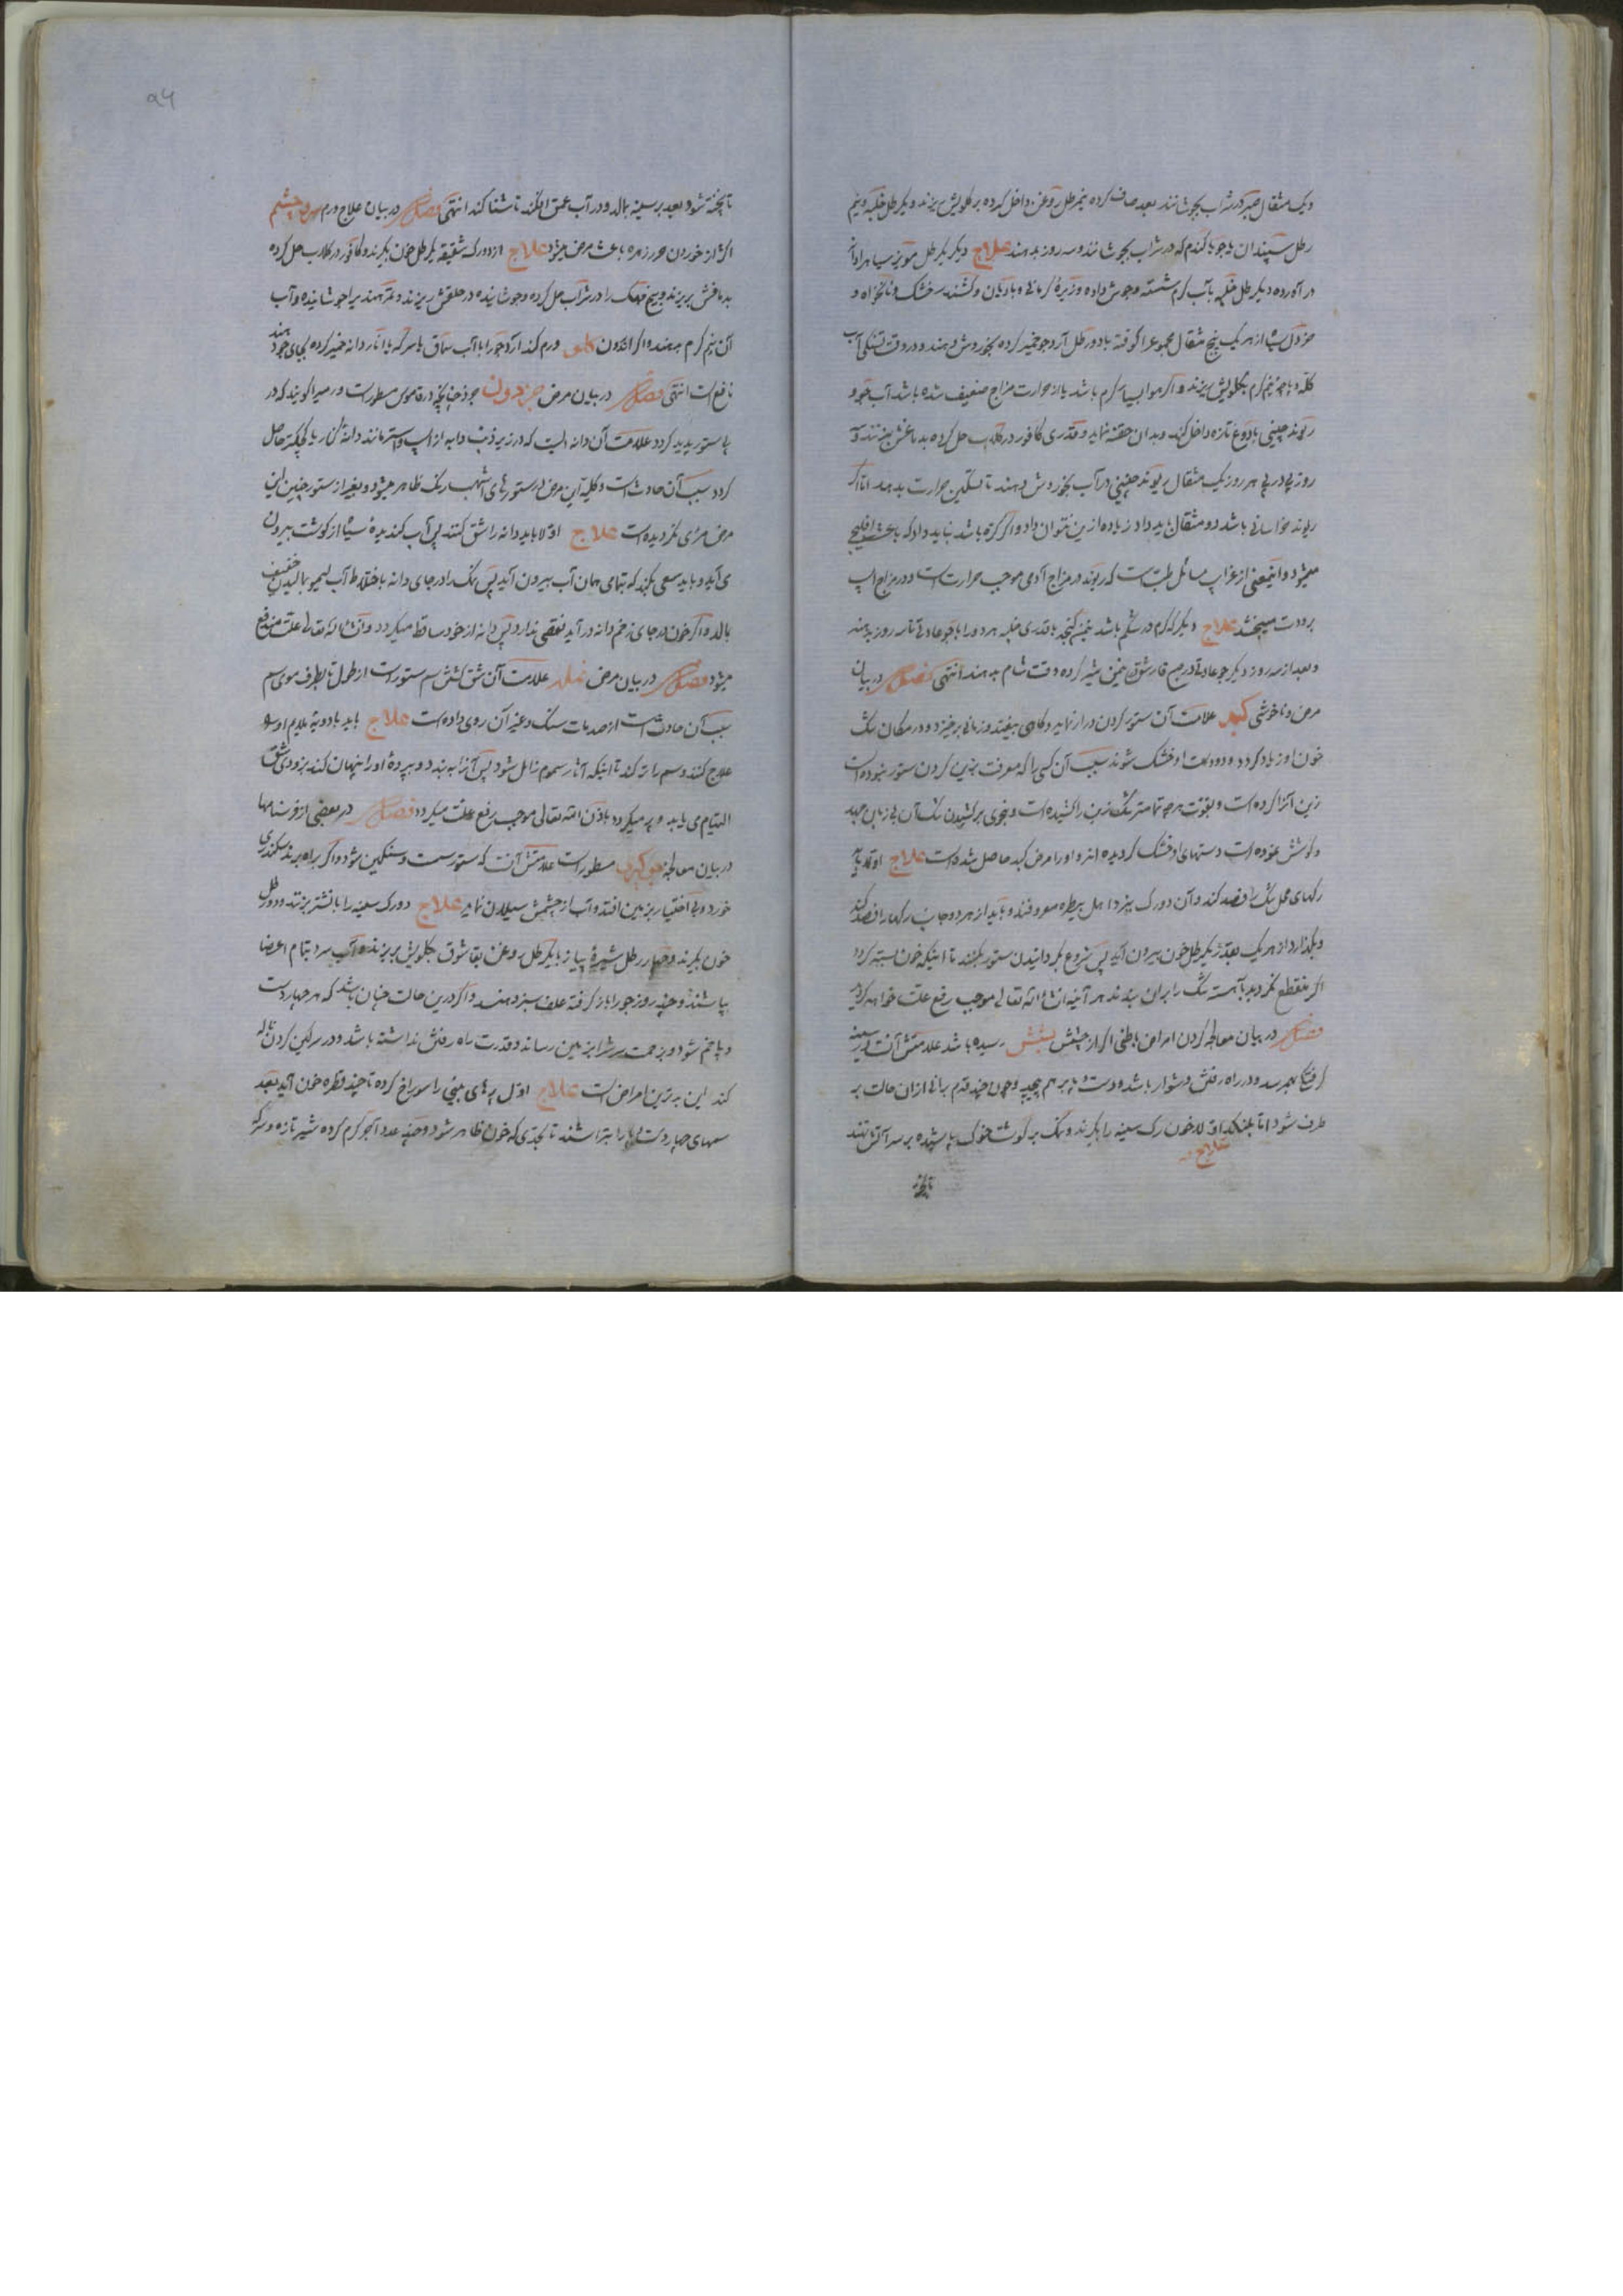 و یک مثقال صبر در شراب بجوشانند بعد صاف کرده نیم رطل روغن داخل کرده بر گلویش ریزند و یکرطل حلبه و نیم
رطل سپندان با جو یا گندم که در شراب بجوشانند و سه روز بدهند علاج دیگر یکرطل مویز سیاه را دانه
در آورده و یکرطل حلبه بآب گرم شسته و جوش داده و زیرهٔ کرمانی و بادیان و کشنیز خشک و نانخواه و
خردل سیاه از هر یک پنج مثقال مجموع را کوفته با دو رطل آرد جو خمیر کرده بخوردش دهند و در وقت تشنگی آب
کله و پاچه نیم گرم بگلویش ریزند و اگر هوا بسیار گرم باشد یا از حرارت مزاج ضعیف شده باشد آب جو و
ریوند چینی با دوغ تازه داخل کنند و بدان حقنه نماید و قدری کافور در گلاب حل کرده بدماغش بریزند و
روز پی در پی هر روز یک مثقال ریوند چینی در آب بخوردش دهند تا تسکین حرارت بدهد اما اگر
ریوند خراسانی باشد دو مثقال باید داد زیاده ازین نتوان داد و اگر کره باشد نباید داد که باعث
میشود و اینمعنی از غرایب مسائل طبست که ریوند در مزاج آدمی موجب حرارتست و در مزاج اسپ
برودت میبخشد علاج دیگر که کرم در شکم باشد کنجد با قدری حلبه هر دو را با جو عادتی تا سه روز بدهند
و بعد از سه روز دیگر جو عادتی در صبح شام بدهند انتهی فصل در بیان
مرض و ناخوشی کبد علامت آن ستور گردن دراز نماید و گاهی بیفتد و زمانی برخیزد و در مکان تنگ
خون او زیاد گردد و دو دست او خشک شوند سبب آن کسی را که معرفت بزین کردن ستور نبوده است
زین آنرا کرده است و بقوت هر چه تمامتر تنگ زین را کشیده است و بنحوی بر کشیدن تنگ آن بی زبان جهد
و کوشش نموده است دستهای او خشک گردیده اند و او را مرض کبد حاصل شده است علاج اولا باید
رگهای محل تنگ را فصد کند و آن دو رگ بنزد اهل بیطره معروفند و باید از هر دو جانب رگها را فصد کند
و بگذارد از هر یک بقدر یکرطل خون بیرون آید پس شروع بگردانیدن ستور بکنند تا اینکه خون بسته گردد
اگر منقطع نگردید بآهستگی تنگ را بران ببندند هر آینه انشاءالله تعالی موجب رفع علت خواهد گردید
فصل در بیان معالجه کردن امراض باطنی اگر از چشش بشش رسیده باشد علامتش آنست در سینه
گرفتگی بهمرسد و در راه رفتن دشوار باشد و دست و پا بر هم پیچد و چون چند قدم برانی ازان حالت بر
طرف شود اما بلنگد اولا خون رگ سینه را بگیرند و نمک بر گوشت خوک پاشیده بر سر آتش نهند
علاج
تا پخته
۵۴
تا پخته شود بعد بر سینه بمالد و در آب عمق افکند تا شنا کند انتهی فصل در بیان علاج ورم سر و چشم
اکثر از خوردن خرزهره باعث مرض میشود علاج از دو رگ شقیقه یکرطل خون بگیرند و کافور در گلاب حل کرده
بدماغش بریزند و بیخ را در شراب حل کرده و جوشانیده در حلقش ریزند و جوشانیده و آب
آن نیم گرم بدهند و اگر اندرون گلو ورم کند آرد جو را با آب سماق یا سرکه یا انار دانه خمیر کرده بجای جو دهند
نافع است انتهی فصل در بیان مرض جرذون جرذ چنانچه در قاموس مسطورست ورمیرا گویند که در
پی ستور پدید گردد علامت آن دانه ایست که در زیر ذنب دابه از اسپ و استر مانند دانه حاصل
گردد سبب آن حادث است و کلیه این مرض در ستورهای اشهب رنگ ظاهر میشود و بغیر از ستور چنین این
مرض مرئی نگردیده است علاج اولا باید دانه را شق کنند پس آب گندیدهٔ سیاه از گوشت بیرون
می آید و باید سعی بکند که تمامی همان آب بیرون آید پس نمک را در جای دانه باختلاط آب لیمو بمالیدن خفیف
بمالد و اگر خون در جای زخم دانه در آید نقصی ندارد پس دانه از خود ساقط میگردد و انشاءالله تعالی علت مندفع
میشود فصل در بیان مرض نمله علامت آن شق سم ستورست از طول تا بطرف موی سم
سبب آن حادث است از صدمات سنگ و غیر آن روی داده است علاج باید بادویهٔ ملایم او را
علاج کنند و سم را تر کند تا اینکه آثار سموم زائل شود پس آنرا به بندد و بپردهٔ او را پنهان کند بزودی شق
التیام می یابد و پر میگردد باذن الله تعالی موجب رفع علت میگردد فصل در بعضی از فرسنامها
در بیان معالجه مسطورست علامتش آنست که ستور سست و سنگین شود و اگر براه برند سکندری
خورد و بی اختیار بزمین افتد و آب از چشمش سیلان نماید علاج دو رگ سینه را بانشتر بزنند و دو رطل
خون بگیرند و چهار رطل شیرهٔ پیاز با یکرطل روغن بقاشوق بگلویش بریزند و آب سرد بتمام اعضا
بپاشند و چند روز جو را باز گرفته علف سبز دهند و اگر درین حالت چنان باشد که هر چهار دست
و پا خم شود و بزحمت سر را بزمین رساند و قدرت راه رفتن نداشته باشد و در سرگین کردن ناله
کند این بدترین امراض است علاج اول پرهای بینی را سوراخ کرده تا چند قطره خون آید بعد
سمهای چهار دست و پا را بتراشند تا بحدی که خون ظاهر شود و چند عدد آجر گرم کرده شیر تازه و سرکه